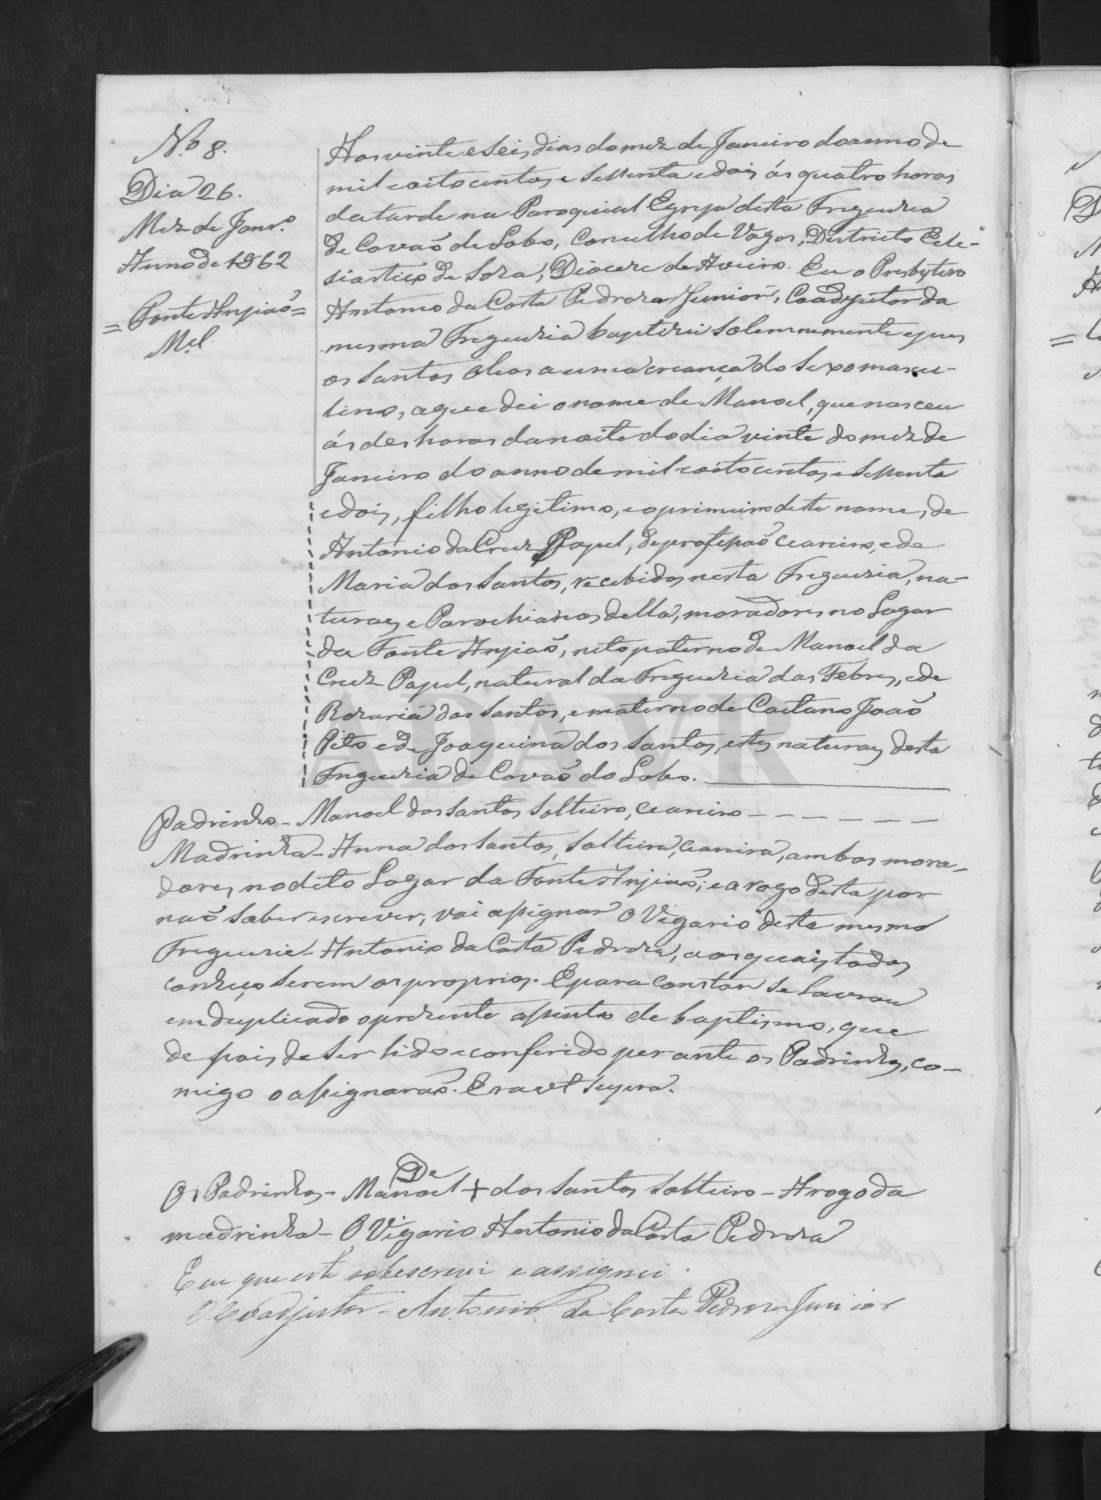 N.º 8.
Dia 26.
Mez de Janr.º
Anno de 1862
= Fonte Anjiaõ =
M.el
Aos vinte e seis dias do mez de Janeiro do anno de
mil e oito centos e settenta e dois ás quatro horas
da tarde na Paroquial Egreja desta Freguezia
de Covaõ de Lobo, Concelho de Vagos, Districto Ecle-
siastico de Soza, Diocese de Aveiro. Eu o Presbytero
Antonio da Costa Pedroza Junior, Coadjutor da
mesma Freguezia baptizei solemnemente e pus
os Santos Oleos a uma creança do sexo mascu-
lino, a que dei o nome de Manoel, que nasceu
ás des horas da noite do dia vinte do mez de
Janeiro do anno de mil e oito centos e settenta
e dois, filho legitimo, e o primeiro deste nome, de
Antonio da Cruz Papel, de profissaõ ceareiro, e de
Maria dos Santos, recebidos nesta Freguezia, na-
turaes e Parochianos della, moradores no Lugar
da Fonte Anjiaõ, neto paterno de Manoel da
Cruz Papel, natural da Freguezia das Febres, e de
Rozaria dos Santos, e materno de Caetano Joaõ
Pito e de Joaquina dos Santos, estes naturaes desta
Freguezia de Covaõ do Lobo.
Padrinho - Manoel dos Santos Solteiro, Ceareiro
Madrinha - Anna dos Santos, Solteira, ceareira, ambos mora-
dores no dito Lugar da Fonte Anjiaõ; e a rogo desta por
naõ saber escrever, vai assignar O Vigario desta mesma
Freguezia - Antonio da Costa Pedroza, aos quaes todos
conheço serem os proprios. E para constar se lavrou
em duplicado o prezente assento de baptismo, que
depois de ser lido e conferido perante os Padrinhos, co-
migo o assignaraõ. Era ut supra.
De
Os Padrinhos - Manoel + dos Santos Solteiro - A rogo da
madrinha - O Vigario Antonio da Costa Pedroza
E eu que este sobescrevi e assignei.
O Coadjutor - Antonio da Costa Pedroza Junior